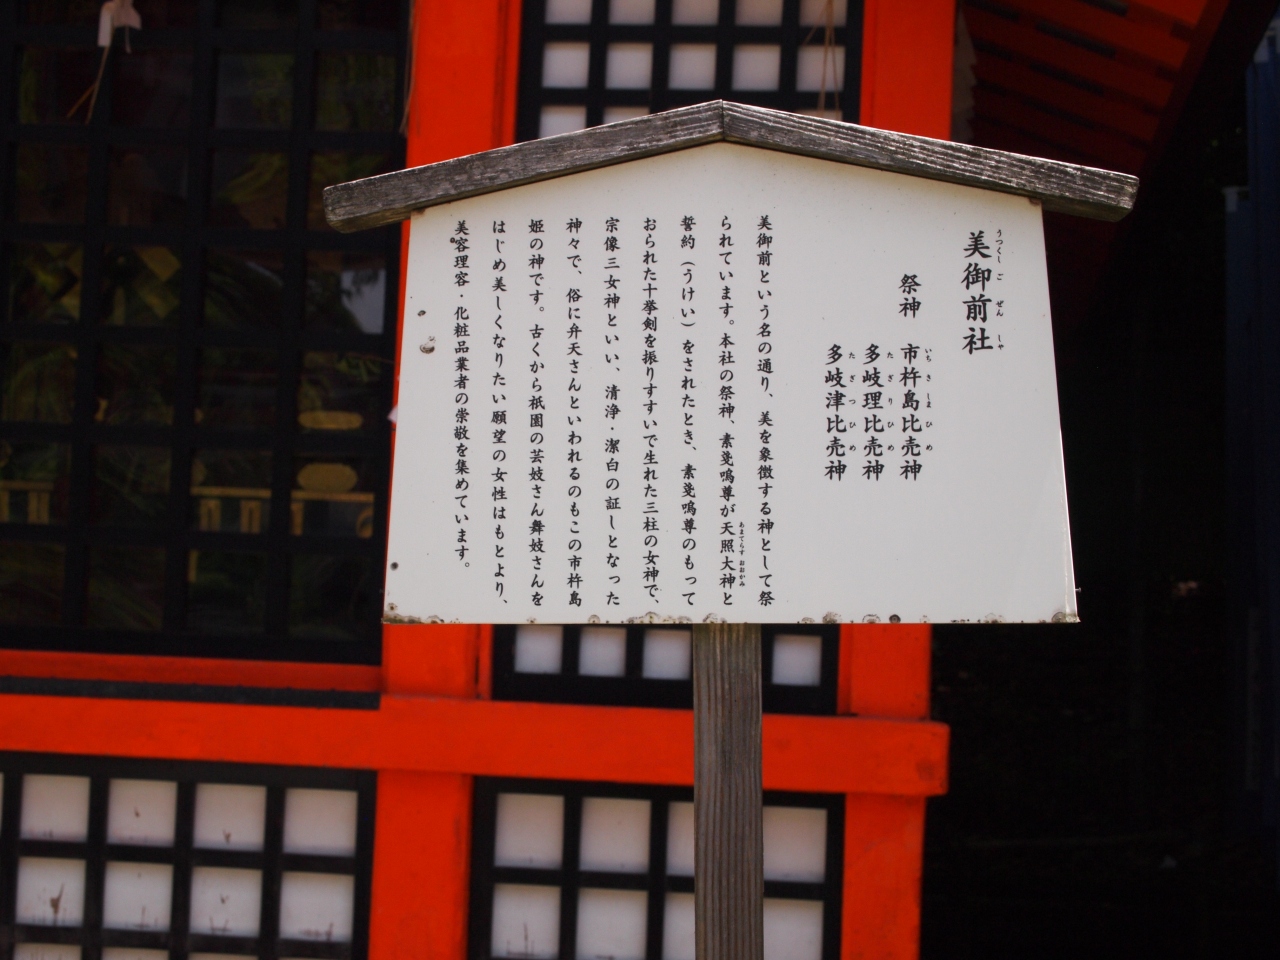 美御前社
うつくしごぜんしゃ
祭神
市杵島比売神
いちきしまひめ
多岐理比売神
たぎりひめ
多岐津比売神
たぎつひめ
美御前という名の通り、美を象徴する神として祭
られています。本社の祭神、素戔嗚尊が天照大神と
あまてらすおおかみ
誓約（うけい）をされたとき、素戔嗚尊のもって
おられた十拳剣を振りすすいで生れた三柱の女神で、
宗像三女神といい、清浄・潔白の証しとなった
神々で、俗に弁天さんといわれるのもこの市杵島
姫の神です。古くから祇園の芸妓さん舞妓さんを
はじめ美しくなりたい願望の女性はもとより、
美容理容・化粧品業者の崇敬を集めています。